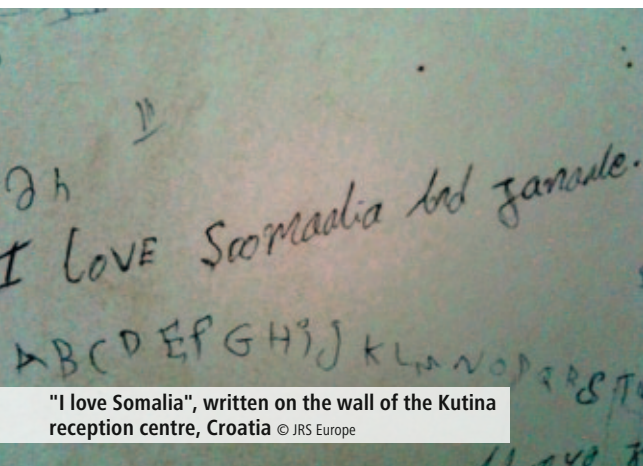 2h
I LOVE Soomaalia and Janaale.
A B C D E F G H i J K L M N O P Q R S T
"I love Somalia", written on the wall of the Kutina
reception centre, Croatia © JRS Europe